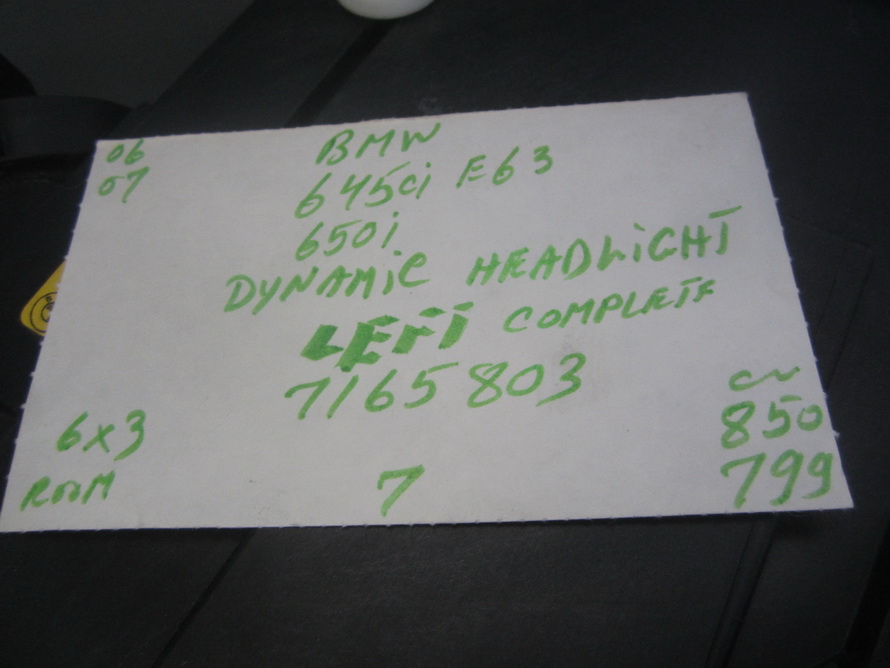 06
07
BMW
645ci E63
650i
DYNAMIC HEADLIGHT
LEFT COMPLETE
7165803
6x3
ROOM
7
850
799